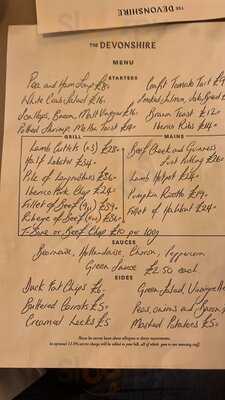 THE DEVONSHIRE
MENU
STARTERS
Pea and Ham Soup £8.
White Crab Salad £16.
Scallops, Bacon, Malt Vinegar £16.
Potted Shrimps, Melba Toast £14.
Confit Tomato Tart £9
Smoked Salmon,
Brawn Toast £12.
Iberico Ribs £14.
GRILL
Lamb Cutlets £28.
Half Lobster £34.
Pile of Langoustines £36.
Iberico Pork Chop £24.
Fillet of Beef £39.
Ribeye of Beef £36.
T-Bone or Beef Chop £10 per 100g
MAINS
Beef Cheek and Guinness
Suet Pudding £26
Lamb Hotpot £24.
Pumpkin Risotto £19.
Fillet of Halibut £24.
SAUCES
Bearnaise, Hollandaise, Choron, Peppercorn
Green Sauce £2.50 each
SIDES
Duck Fat Chips £6.
Buttered Carrots £5.
Creamed Leeks £5
Green Salad, Vinaigrette
Peas, onions and Bacon
Mashed Potatoes £5.